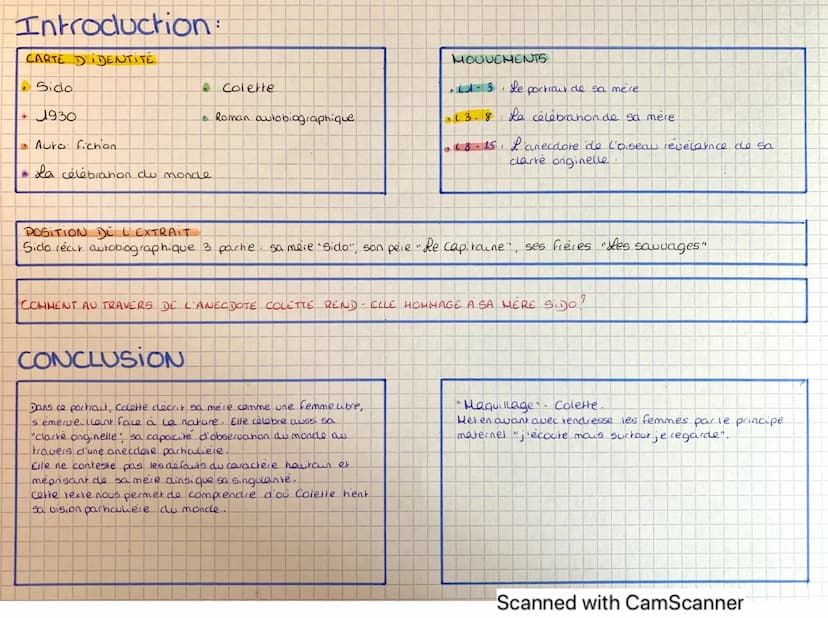 Introduction:
CARTE D'IDENTITÉ
Sido
Colette
1930
Roman autobiographique
Auto fiction
La célébration du monde
MOUVEMENTS
L1-3 : Le portrait de sa mère
L3-8 : La célébration de sa mère
L8-15 : L'anecdote de l'oiseau révélatrice de sa
clarté originelle.
POSITION DE L'EXTRAIT
Sido récit autobiographique 3 partie : sa mère "Sido", son père "Le Capitaine", ses frères "Les sauvages"
COMMENT AU TRAVERS DE L'ANECDOTE COLETTE REND-ELLE HOMMAGE À SA MÈRE SIDO?
CONCLUSION
Dans ce portrait, Colette décrit sa mère comme une femme libre,
s'émerveillant face à la nature. Elle célèbre aussi sa
"clarté originelle", sa capacité d'observation du monde au
travers d'une anecdote particulière.
Elle ne conteste pas les défauts du caractère hautain et
méprisant de sa mère ainsi que sa singularité.
Cette texte nous permet de comprendre d'où Colette tient
sa vision particulière du monde.
"Maquillage". Colette.
Met en avant avec tendresse les femmes par le principe
maternel "j'écoute mais surtout je regarde".
Scanned with CamScanner